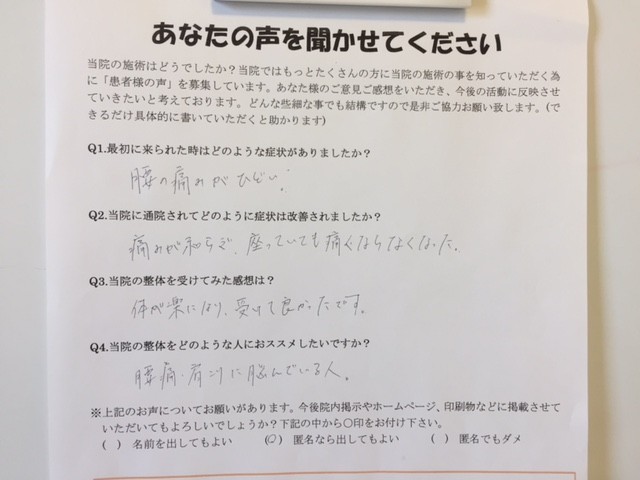 あなたの声を聞かせてください
当院の施術はどうでしたか？当院ではもっとたくさんの方に当院の施術の事を知っていただく為
に「患者様の声」を募集しています。あなた様のご意見ご感想をいただき、今後の活動に反映させ
ていきたいと考えております。どんな些細な事でも結構ですので是非ご協力お願い致します。(で
きるだけ具体的に書いていただくと助かります)
Q1.最初に来られた時はどのような症状がありましたか？
腰の痛みがひどい。
Q2.当院に通院されてどのように症状は改善されましたか？
痛みが和らぎ、座っていても痛くならなくなった。
Q3.当院の整体を受けてみた感想は？
体が楽になり、受けて良かったです。
Q4.当院の整体をどのような人におススメしたいですか？
腰痛・肩こりに悩んでいる人。
※上記のお声についてお願いがあります。今後院内掲示やホームページ、印刷物などに掲載させて
いただいてもよろしいでしょうか？下記の中から〇印をお付け下さい。
( ) 名前を出してもよい (○) 匿名なら出してもよい ( ) 匿名でもダメ